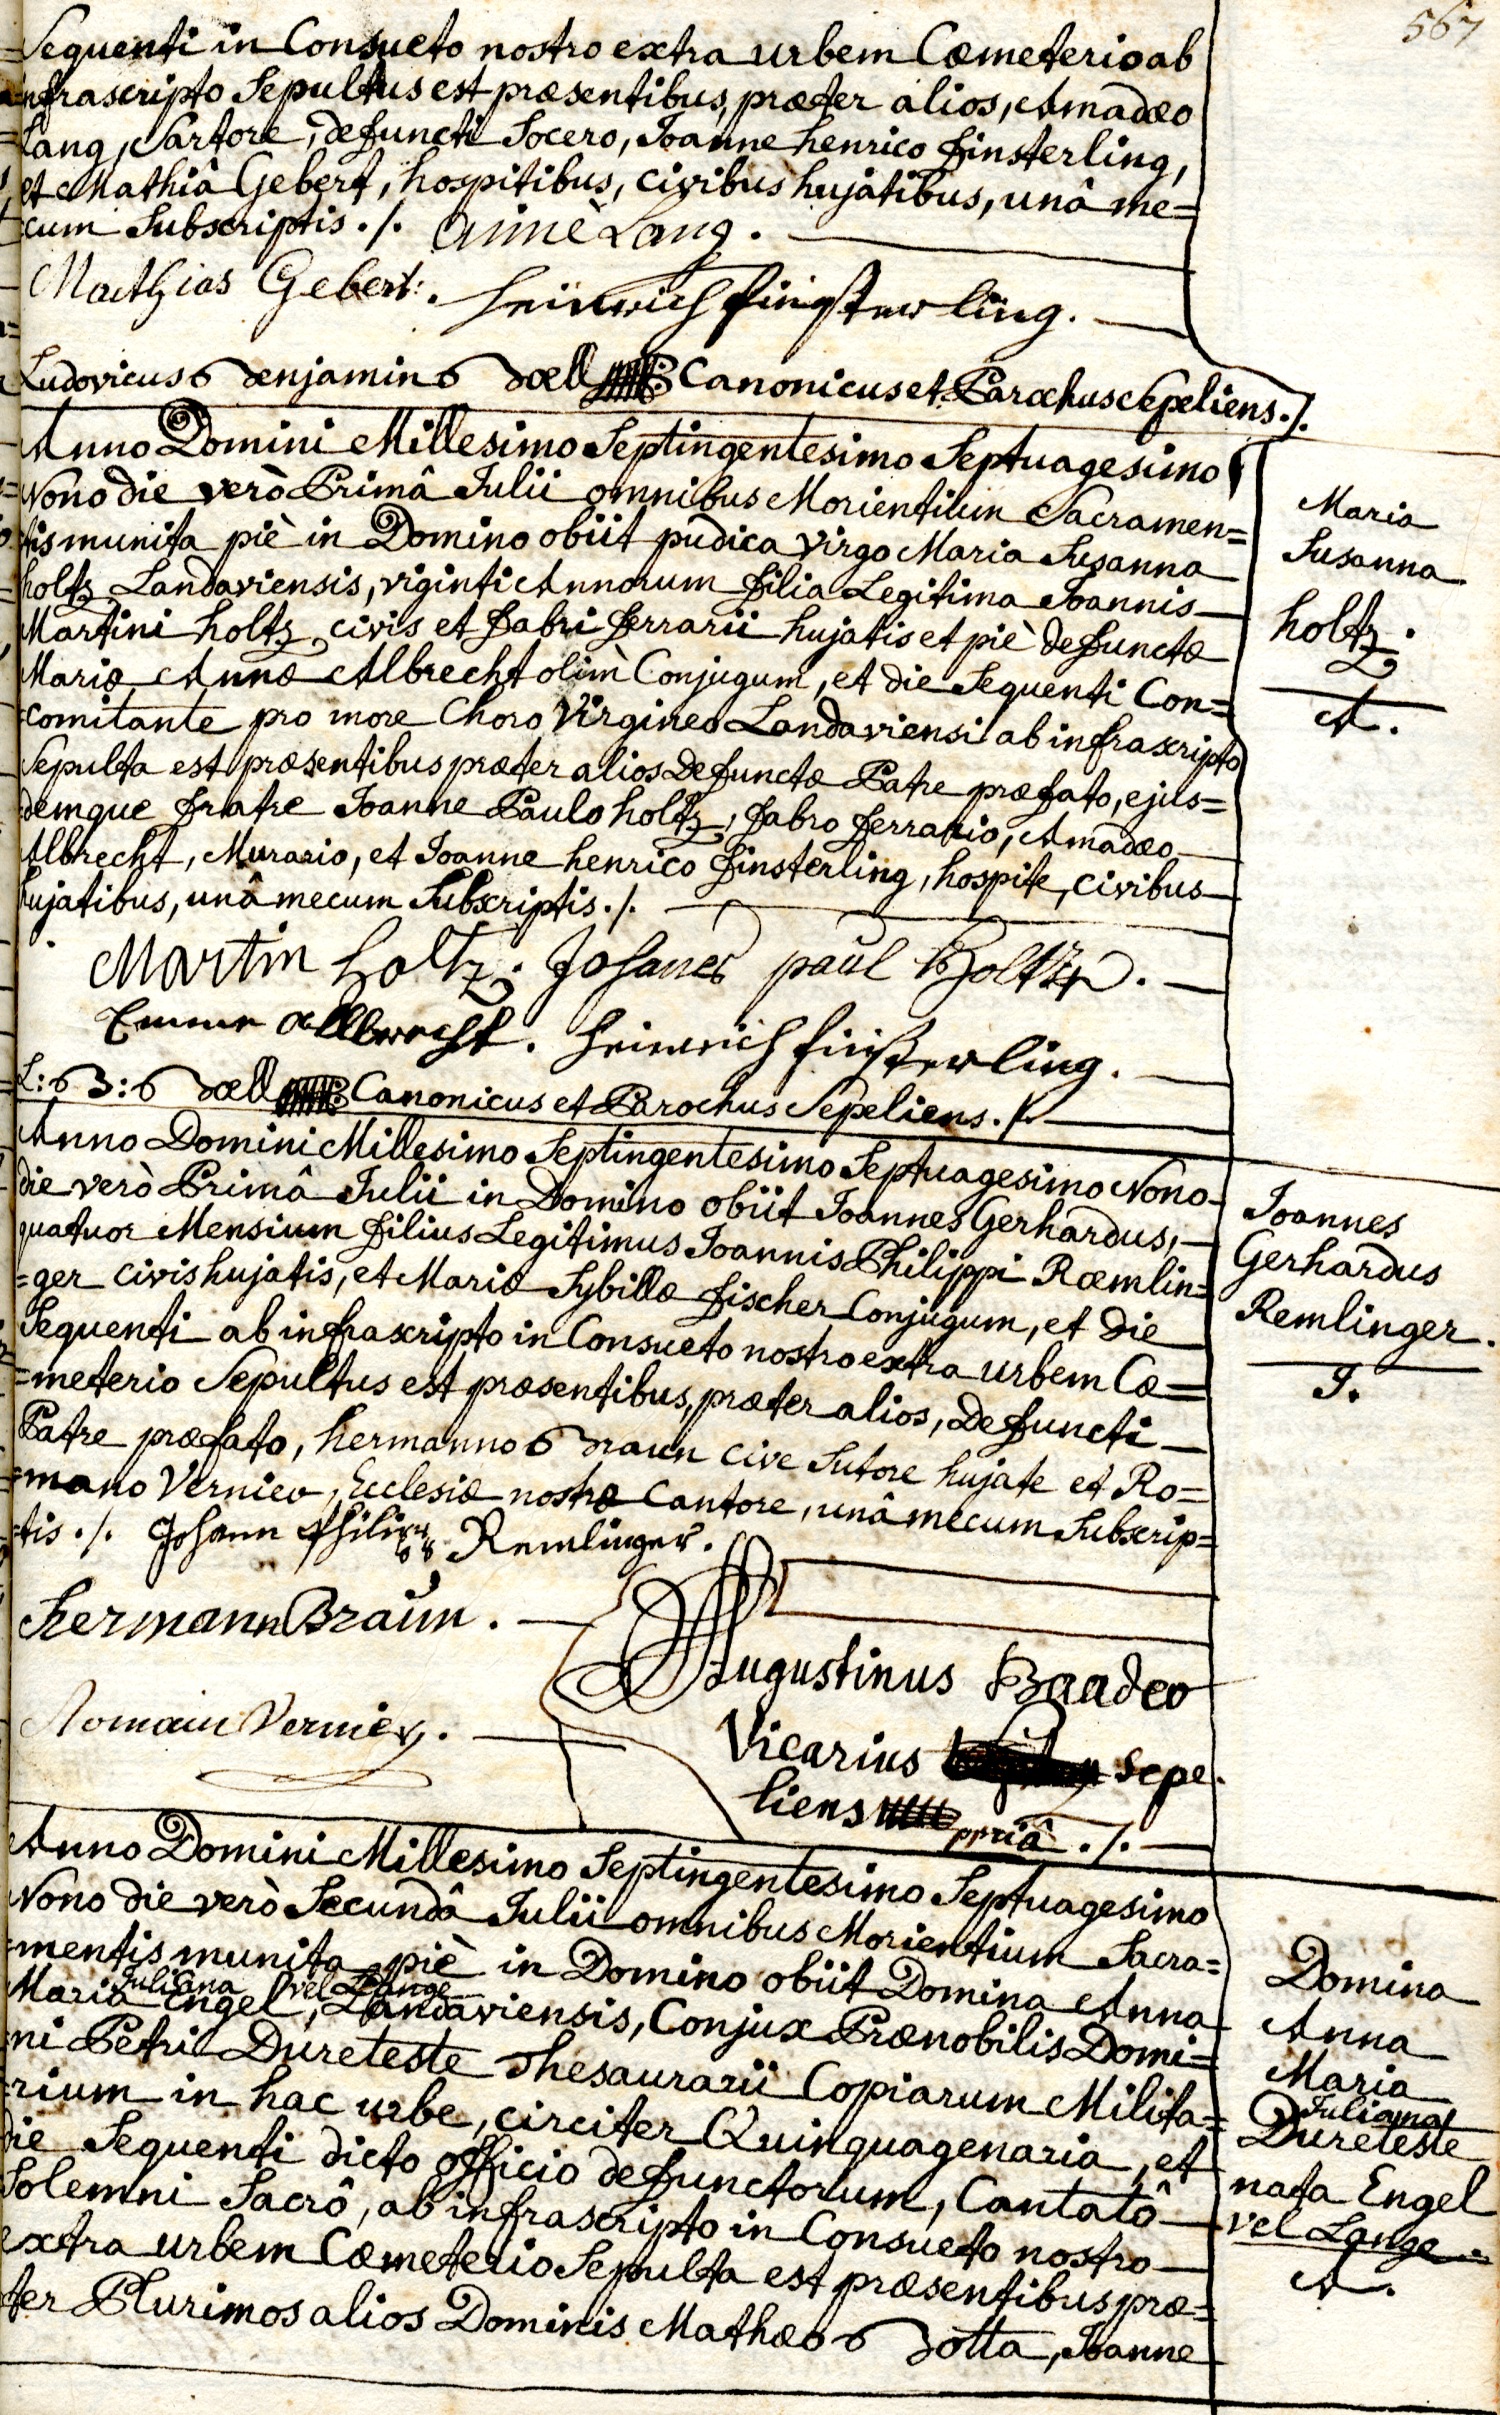 567
Sequenti in Consueto nostro extra urbem Cœmeterio ab
infrascripto Sepultus est præsentibus, præter alios, Amadæo
Lang, Sartore, defuncti Socero, Joanne henrico finsterling,
et Mathiâ Gebert, hospitibus, civibus hujatibus, unâ me=
cum Subscriptis ./. aimè Lang.
Mathias Gebert. heinrich finsterling.
Ludovicus Benjamin Boell Canonicus et Parochus Sepeliens ./.
Anno Domini Millesimo Septingentesimo Septuagesimo
Nono die verò Primâ Julii omnibus Morientium Sacramen=
tis munita piè in Domino obiit pudica virgo Maria Susanna
holtz Landaviensis, viginti Annorum filia Legitima Joannis
Martini holtz civis et fabri ferrarii hujatis et piè defunctæ
Mariæ Annæ Albrecht olim Conjugum, et die Sequenti Con=
comitante pro more Choro Virgineo Landaviensi ab infrascripto
Sepulta est præsentibus præter alios Defunctæ Patre præfato, ejus=
demque fratre Joanne Paulo holtz, fabro ferrario, Amadæo
Albrecht, Murario, et Joanne henrico finsterling, hospite, civibus
hujatibus, unâ mecum Subscriptis ./.
Maria
Susanna
holtz.
A.
Martin holtz. Johanes paul Holtz.
allbrecht. heinrich finsterling.
L: B: Boell Canonicus et Parochus Sepeliens ./.
Anno Domini Millesimo Septingentesimo Septuagesimo Nono
die verò Primâ Julii in Domino obiit Joannes Gerhardus,
quatuor Mensium filius Legitimus Joannis Philippi Ræmlin=
=ger civis hujatis, et Mariæ Sybillæ fischer Conjugum, et die
Sequenti ab infrascripto in Consueto nostro extra urbem Cæ=
=meterio Sepultus est præsentibus, præter alios, Defuncti
Patre præfato, hermanno Braun cive Sutore hujate et Ro=
=mano Vernier, Ecclesiæ nostræ Cantore, unâ mecum Subscrip=
=tis ./. Johann Philipp Remlinger.
Joannes
Gerhardus
Remlinger.
J.
Hermann Braun.
Romain Vernier.
Augustinus Baader
Vicarius sepe.
liens ppriâ ./.
Anno Domini Millesimo Septingentesimo Septuagesimo
Nono die verò Secundâ Julii omnibus Morientium Sacra=
=mentis munita piè in Domino obiit Domina Anna
Juliana vel Lange
Maria Engel, Landaviensis, Conjux Prænobilis Domi=
ni Petri Dureteste Thesaurarii Copiarum Milita=
=rium in hac urbe, circiter Quinquagenaria, et
die Sequenti dicto officio defunctorum, Cantatô
Solemni Sacrô, ab infrascripto in Consueto nostro
extra urbem Cœmeterio Sepulta est præsentibus præ=
ter Plurimos alios Dominis Mathæo Botta, Joanne
Domina
Anna
Maria
Juliana
Dureteste
nata Engel
vel Lange.
A.